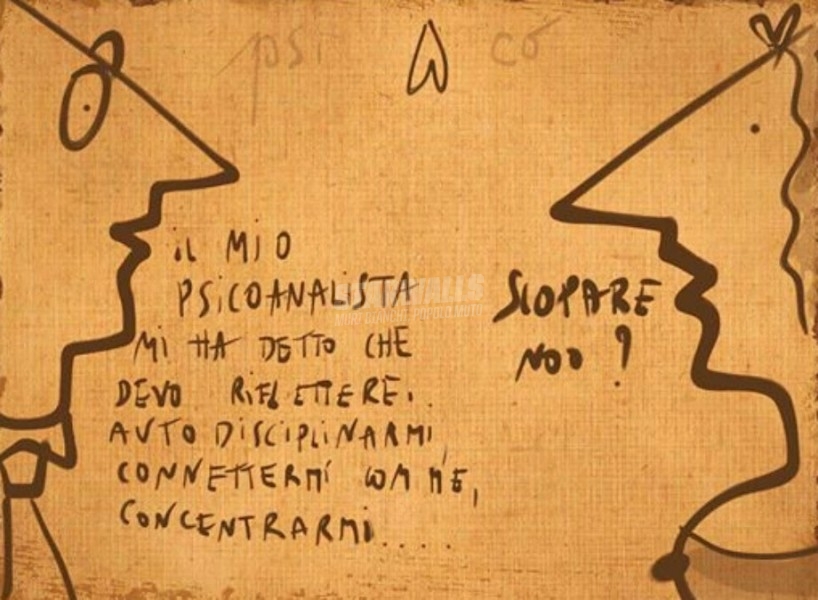 psi có
il MIO
PSiCOANALiSTA
Mi HA DETTO CHE
DEVO RiFLETTERE.
AUTO DiSCiPLiNARMi,
CONNETTERMi CON ME,
CONCENTRARMi....
SCOPARE
NOO?